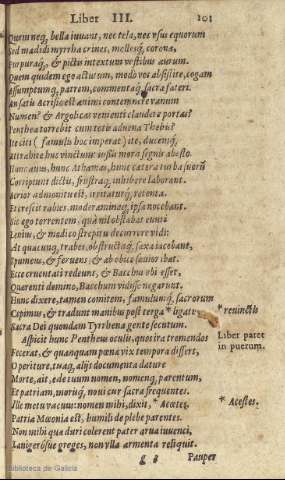 Liber III. 101
Quem neq; bella iuuant, nec tela, nec vsus equorum
Sed madidi myrrha crines, mollesq; coronæ,
Purpuraq;, & pictis intextum vestibus aurum.
Quem quidem ego actutum, modo vos absistite, cogam
Assumptumq; patrem, commentaq; sacra fateri.
An satis Acrisio est animi contemnere vanum
Numen? & Argolicas venienti claudere portas?
Penthea terrebit cum totis aduena Thebis?
Ite citi (famulis hoc imperat) ite, ducemq;
Attrahite huc vinctum: iussis mora segnis abesto.
Hunc auus, hunc Athamas, hunc cætera turba suorū
Corripiunt dictis, frustraq; inhibere laborant.
Acrior admonitu est, irritaturq; retenta.
Et crescit rabies, moderaminaq; ipsa nocebant.
Sic ego torrentem, quà nil obstabat eunti
Lenius, & modico strepitu decurrere vidi:
At quacunq; trabes, obstructaq; saxa iacebant,
Spumeus, & feruens, & ab obice sæuior ibat.
Ecce cruentati redeunt, & Bacchus vbi esset,
Quærenti domino, Bacchum vidisse negarunt.
Hunc dixere, tamen comitem, famulumq; sacrorum
Cepimus, & tradunt manibus post terga * ligatis
* reuinctis
Sacra Dei quondam Tyrrhena gente secutum.
Liber pater
in puerum.
Aspicit hunc Pentheus oculis, quos ira tremendos
Fecerat, & quanquam pœnæ vix tempora differt,
O periture, tuaq; alijs documenta dature
Morte, ait, ede tuum nomen, nomenq; parentum,
Et patriam, morisq; noui cur sacra frequentes.
Ille metu vacuus: nomen mihi, dixit, * Acœtes.
* Acestes.
Patria Mæonia est, humili de plebe parentes.
Non mihi quæ duri colerent pater arua iuuenci,
Lanigerósue greges, non vlla armenta reliquit.
g 3 Pauper
Biblioteca de Galicia